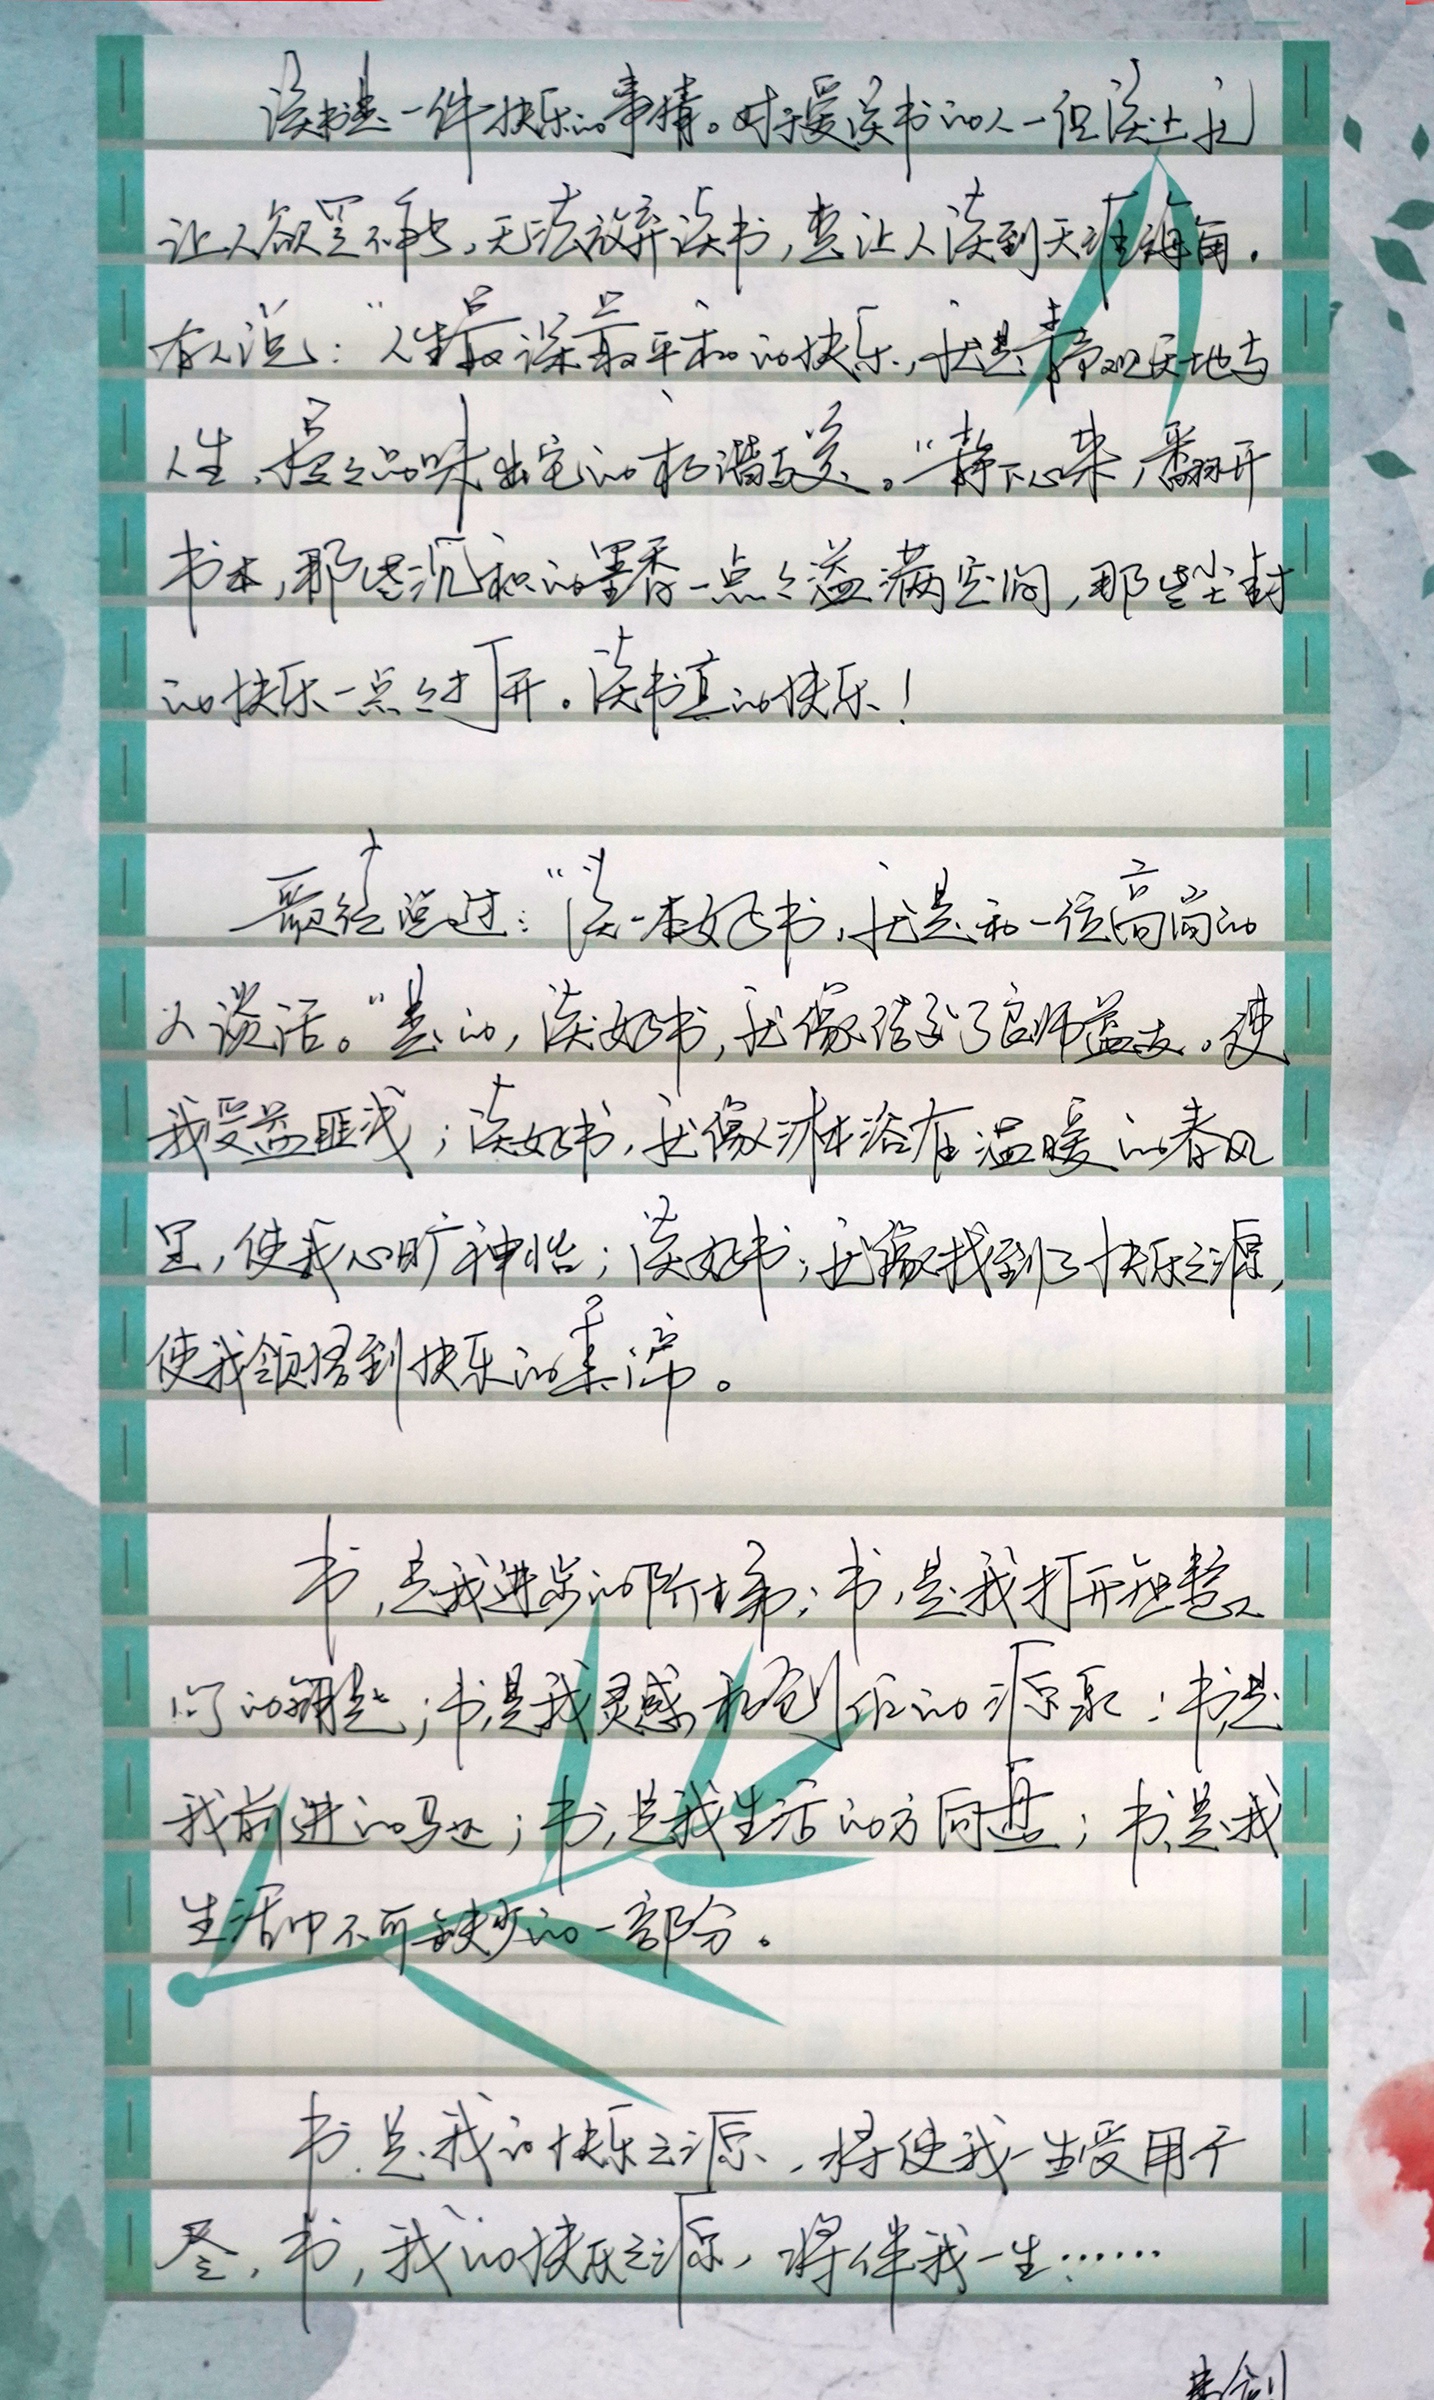 读书是一件快乐的事情。对于爱读书的人一但读上就
让人欲罢不能，无法放弃读书，要让人读到天涯海角．
有人说：“人生最深最平和的快乐，就是静观天地与
人生，慢慢品味出它的和谐与美。”静下心来，翻开
书本，那些沉积的墨香一点点溢满空间，那些尘封
的快乐一点点打开。读书真的快乐！
曾经说过：“读一本好书，就是和一位高尚的
人谈话。”是的，读好书，就像结交了良师益友。使
我受益匪浅；读好书，就像沐浴在温暖的春风
里，使我心旷神怡；读好书；就像找到了快乐之源，
使我领悟到快乐的真谛。
书，是我进步的阶梯；书，是我打开智慧之
门的钥匙；书，是我灵感和创作的源泉；书，是
我前进的马达；书，是我生活的方向盘；书，是我
生活中不可缺少的一部分。
书，是我的快乐之源，将使我一生受用不
尽，书，我的快乐之源，将伴我一生……